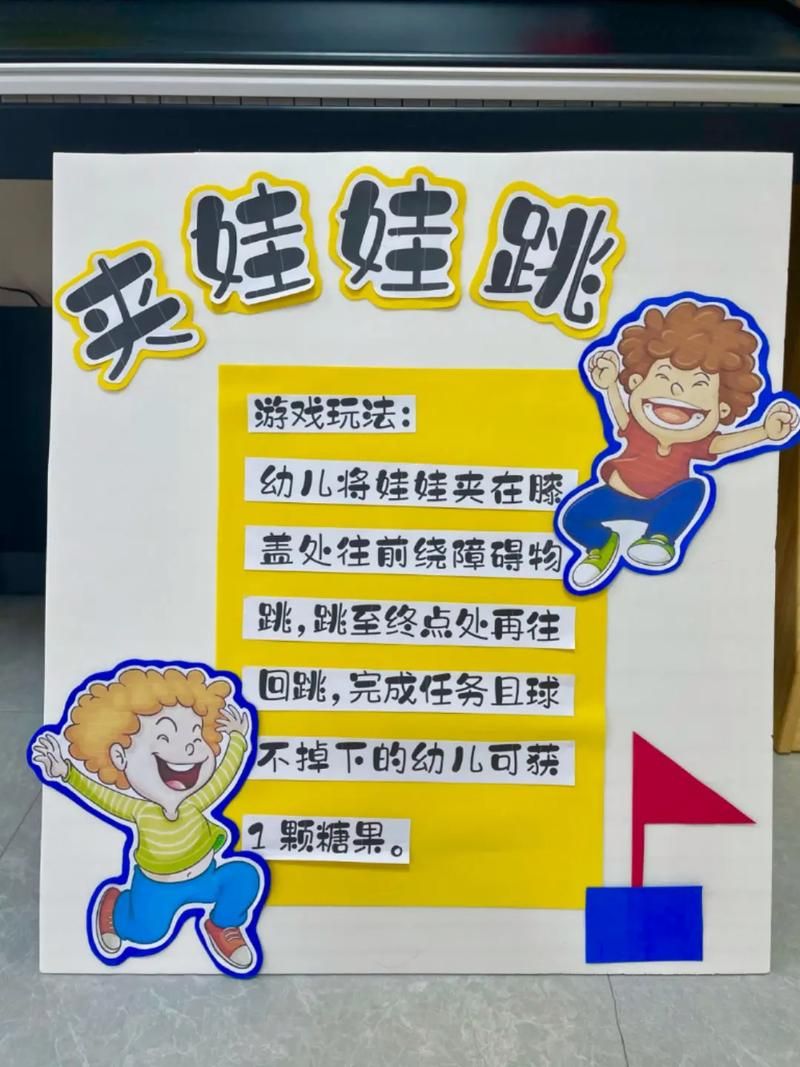 夹娃娃跳
游戏玩法：
幼儿将娃娃夹在膝
盖处往前绕障碍物
跳，跳至终点处再往
回跳，完成任务且球
不掉下的幼儿可获
1颗糖果。